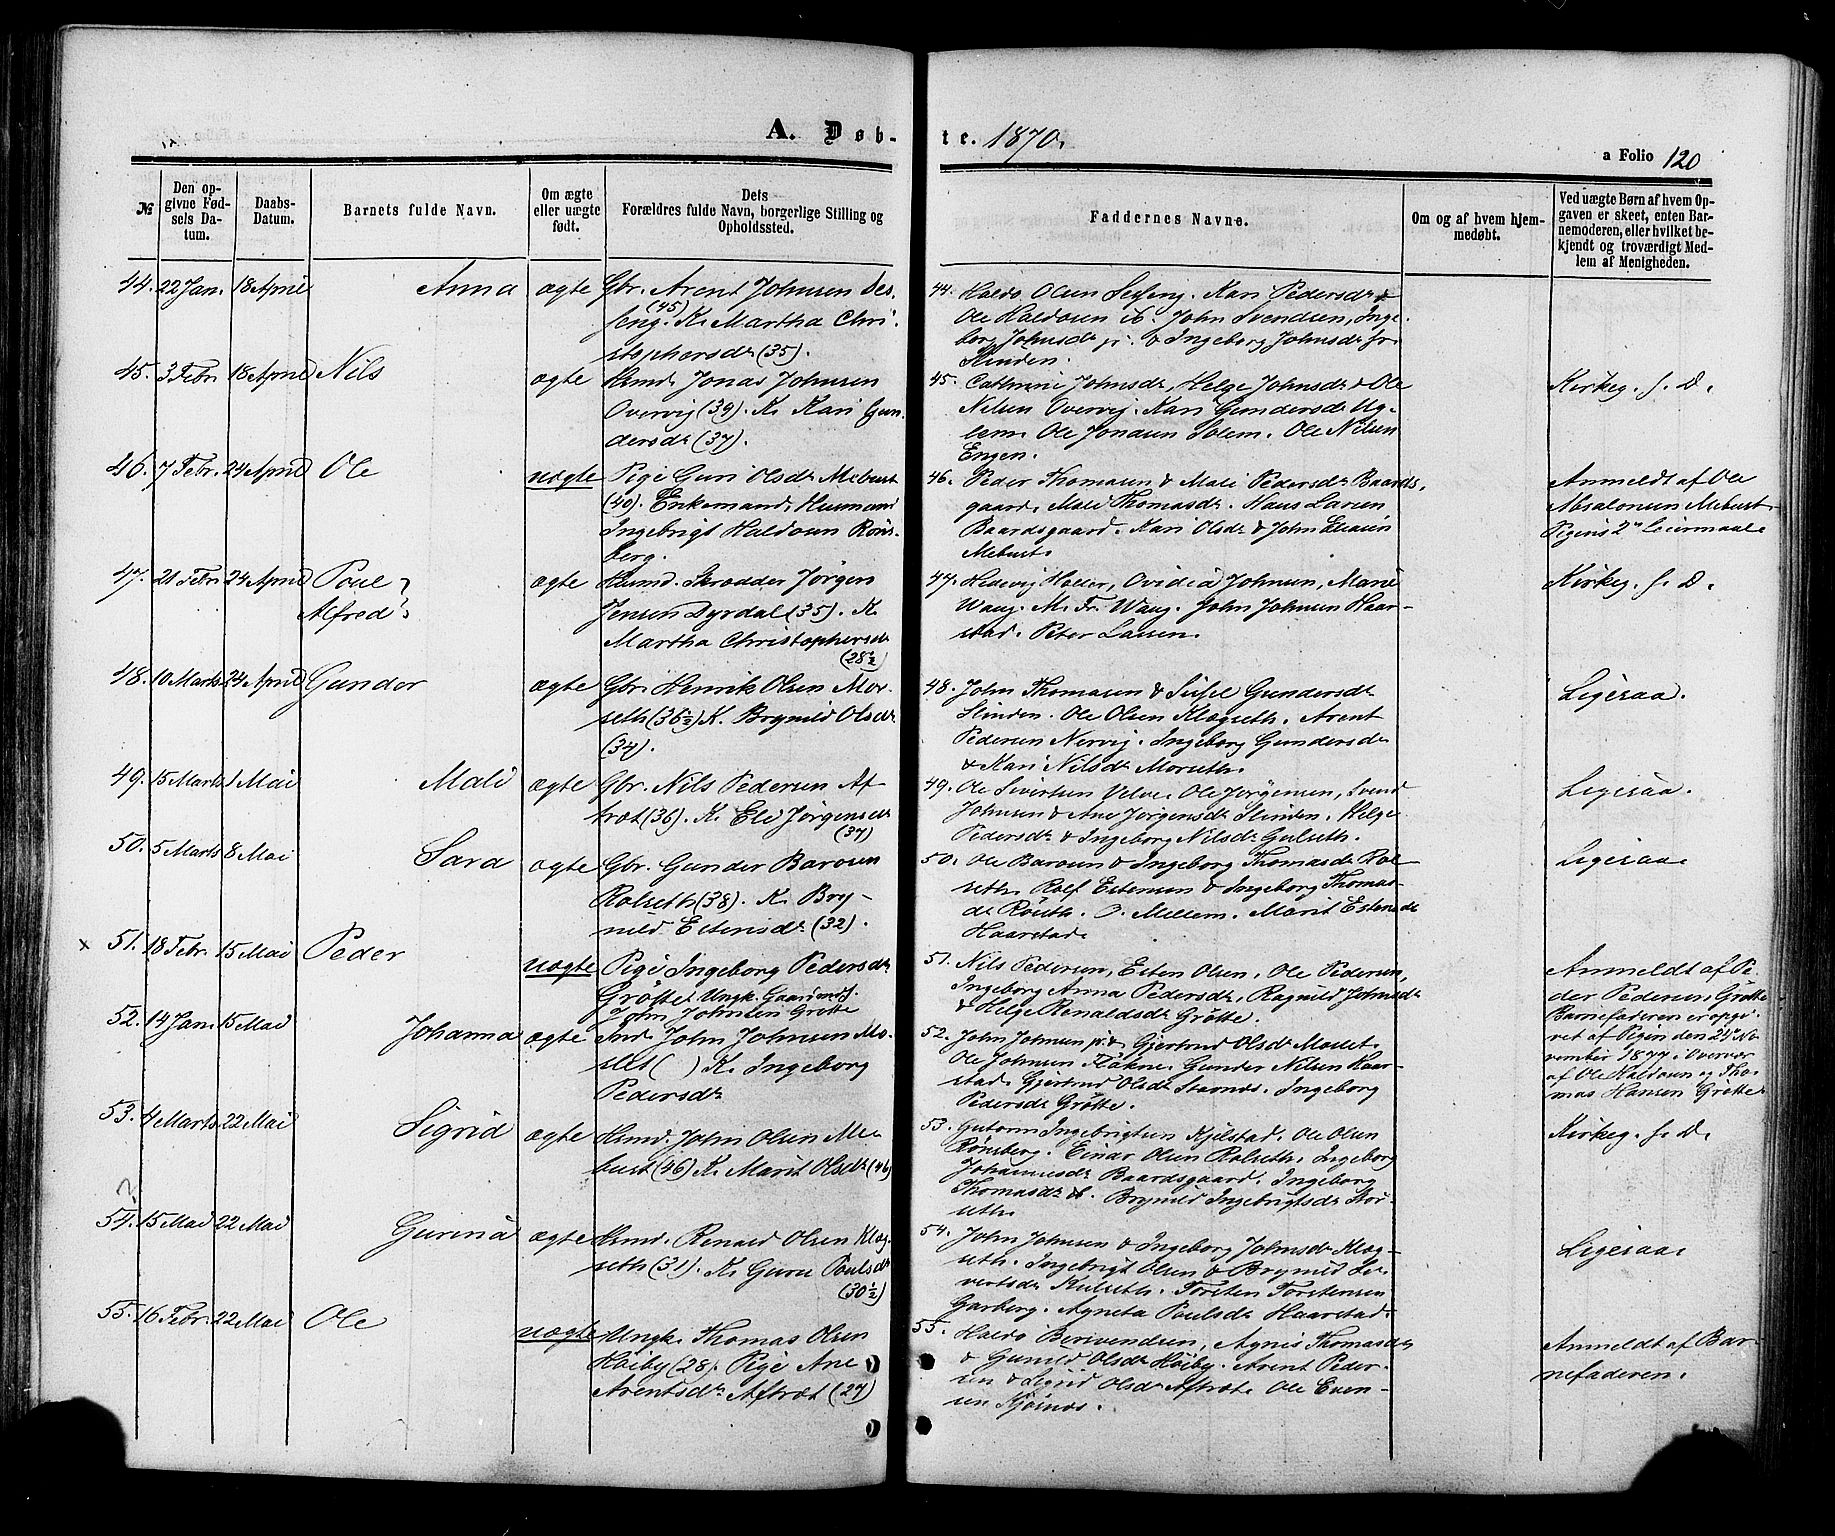 A. Døb-
te. 1870.
a Folio 120
№
Den op-
givne Fød-
sels Da-
tum.
Daabs-
Datum.
Barnets fulde Navn.
Om ægte
eller uægte
født.
Dets
Forældres fulde Navn, borgerlige Stilling og
Opholdssted.
Faddernes Navne.
Om og af hvem hjem-
medøbt.
Ved uægte Børn af hvem Op-
gaven er skeet, enten Bar-
nemoderen, eller hvilket be-
kjendt og troværdigt Med-
lem af Menigheden.
44. 22 Jan. 18 April Anna ægte Gbr. Arent Johnsen Ses-
(45)
feng. K. Martha Chri-
stophersdr (35).
44. Haldo Olsen Sesfeng. Kari Pedersdr &
Ole Haldosen ib. John Svendsen, Inge-
borg Johnsdr jr. & Ingeborg Johnsdr sr.
Slinden.
45. 3 Febr. 18 April Nils ægte Hsmd. Jonas Johnsen
Overvig (39). K. Kari Gun-
dersdr (37).
45. Cathrine Johnsdr, Helge Johnsdr & Ole
Nilsen Overvig. Kari Gundersdr Ug-
lem. Ole Jonasen Solem. Ole Nilsen
Engen.
Kirkeg. f. D.
46. 7 Febr. 24 April Ole uægte Pige Guri Olsdr Mebust
(40). Enkemand, Husmand
Ingebrigt Haldosen Röns-
berg.
46. Peder Thomasen & Mali Pedersdr Baards-
gaard, Mali Thomasdr. Hans Larsen
Baardsgaard. Kari Olsdr & John
Mebust.
Anmeldt af Ole
Absalonsen Mebust.
Pigens 2det Leiermaal
47. 21 Febr. 24 April Poul
Alfred ægte Husmd. Skrædder Jörgen
Jensen Dyrdal (35). K.
Martha Christophersdr
(28½)
47. Hedevig Holder, Ovidia Johnsen, Marie
Waug. M. Fr. Waug. John Johnsen Haar-
stad. Peter Larsen.
Kirkeg. f. D.
48. 10 Marts 24 April Gunder ægte Gbr. Henrik Olsen Mor-
seth (36½) K. Brynild Olsdr
(34).
48. John Thomasen & Sissel Gundersdr
Slinden. Ole Olsen Klægseth. Arent
Pedersen Nervig. Ingeborg Gundersdr
& Kari Nilsdr Morseth.
Ligesaa.
49. 15 Marts 1 Mai Mali ægte Gbr. Nils Pedersen Af-
træt (36). K. Eli Jörgensdr
(37)
49. Ole Sivertsen Velve. Ole Jörgensen, Svend
Johnsen & Ane Jörgensdr Slinden. Helge
Pedersdr & Ingeborg Nilsdr Gulseth.
Ligesaa.
50. 5 Marts 8 Mai Sara ægte Gbr. Gunder Barosen
Rolseth (38). K. Bry-
nild Estensdr (32).
50. Ole Barosen & Ingeborg Thomasdr Rol-
seth. Rolf Estensen & Ingeborg Thomas-
dr Röseth. O. Mellem. Marit Estensdr
Haarstad.
Ligesaa
x 51. 18 Febr. 15 Mai Peder uægte Pige Ingeborg Pedersdr
Grötte. Ungk. Gaardmdf.
John Johnsen Grötte
51. Nils Pedersen, Esten Olsen, Ole Pedersen,
Ingeborg Anna Pedersdr, Ragnild Johnsdr
& Helge Renaldsdr Grötte.
Anmeldt af Pe-
der Pedersen Grötte
Barnefaderen er opgi-
vet af Pigen den 21de No-
vember 1877 i Overvær
af Ole Haldosen og Tho-
mas Hansen Grötte.
52. 14 Jan. 15 Mai Johanna ægte Ind. John Johnsen Mo-
slet ( ) K. Ingeborg
Pedersdr
52. John Johnsen jr. & Gjertrud Olsdr Moslet.
Ole Johnsen Flakne. Gunder Nilsen Haar-
stad. Gjertrud Olsdr Stamnes. Ingeborg
Pedersdr Grötte.
53. 4 Marts 22 Mai Sigrid ægte Hsmd. John Olsen Me-
bust (46) K. Marit Olsdr (46)
53. Gutorm Ingebrigtsen Kjelstad. Ole Olsen
Rönsberg. Einar Olsen Rolseth. Ingeborg
Johannesdr Baardsgaard. Ingeborg
Thomasdr ib. Brynild Ingebrigtsdr Mor-
seth.
Kirkeg. f. D.
?
54. 15 Mai 22 Mai Gurina ægte Hsmd. Renald Olsen Klæg-
seth (31). K. Guru Poulsdr
(30½)
54. John Johnsen & Ingeborg Johnsdr Klæg-
seth. Ingebrigt Olsen & Brynild Si-
vertsdr Kulseth. Torsten Torstensen
Garberg. Agneta Poulsdr Haarstad.
Ligesaa
55. 16 Febr. 22 Mai Ole uægte Ungk. Thomas Olsen
Höiby (28). Pige Ane
Arentsdr Aftræt (27)
55. Haldo Berivendsen, Agnis Thomasdr
& Gunild Olsdr Höiby. Arent Peder-
sen & Sigrid Olsdr Aftræt. Ole Even-
sen Kjösnæs.
Anmeldt af Bar-
nefaderen.